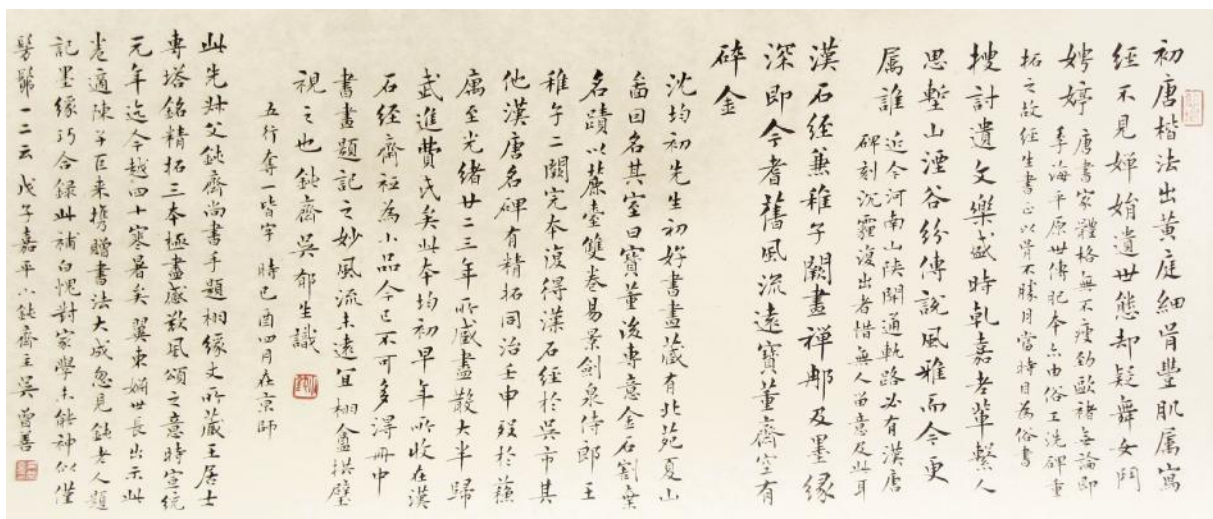 初唐楷法出黃庭細骨豐肌属寫
經不見嬋娟遺世態却疑舞女鬥
娉婷 唐書家體格無不瘦勁歐褚無論即
季海平原世傳肥本亦由俗工洗碑重
拓之故經生書正以骨不勝肉當時目為俗書
搜討遺文樂盛時乾嘉老輩繫人
思塹山湮谷紛傳説風雅而今更
属誰 近今河南山陝開通軌路必有漢唐
碑刻沉霾復出者惜無人留意及此耳
漢石經兼稚子闕畫禪郵及墨緣
深即今耆舊風流遠寶董齋空有
碎金
沈均初先生初好書畫藏有北苑夏山
啚因名其室曰寶董後專意金石割棄
名蹟以麓臺雙卷易景劍泉侍郎王
稚子二闕完本復得漢石經於吳市其
他漢唐名碑有精拓同治壬申歿於蘇
寓至光緒廿二三年所藏盡散大半歸
武進費氏矣此本均初早年所收在漢
石經齋祗為小品今已不可多得冊中
書畫題記之妙風流未遠宜栩盦拱璧
視之也鈍齋吳郁生識
五行奪一皆字 時己酉四月在京師
此先叔父鈍齋尚書手題栩緣丈所藏王居士
專塔銘精拓三本極盡感歎風頌之意時宣統
元年迄今越四十寒暑矣翼東姻世長出示此
卷適陳子巨来携贈書法大成忽見鈍老人題
記墨緣巧合録此補白愧對家學未能神似僅
髣髴一二云戊子嘉平小鈍齋主吳曾善